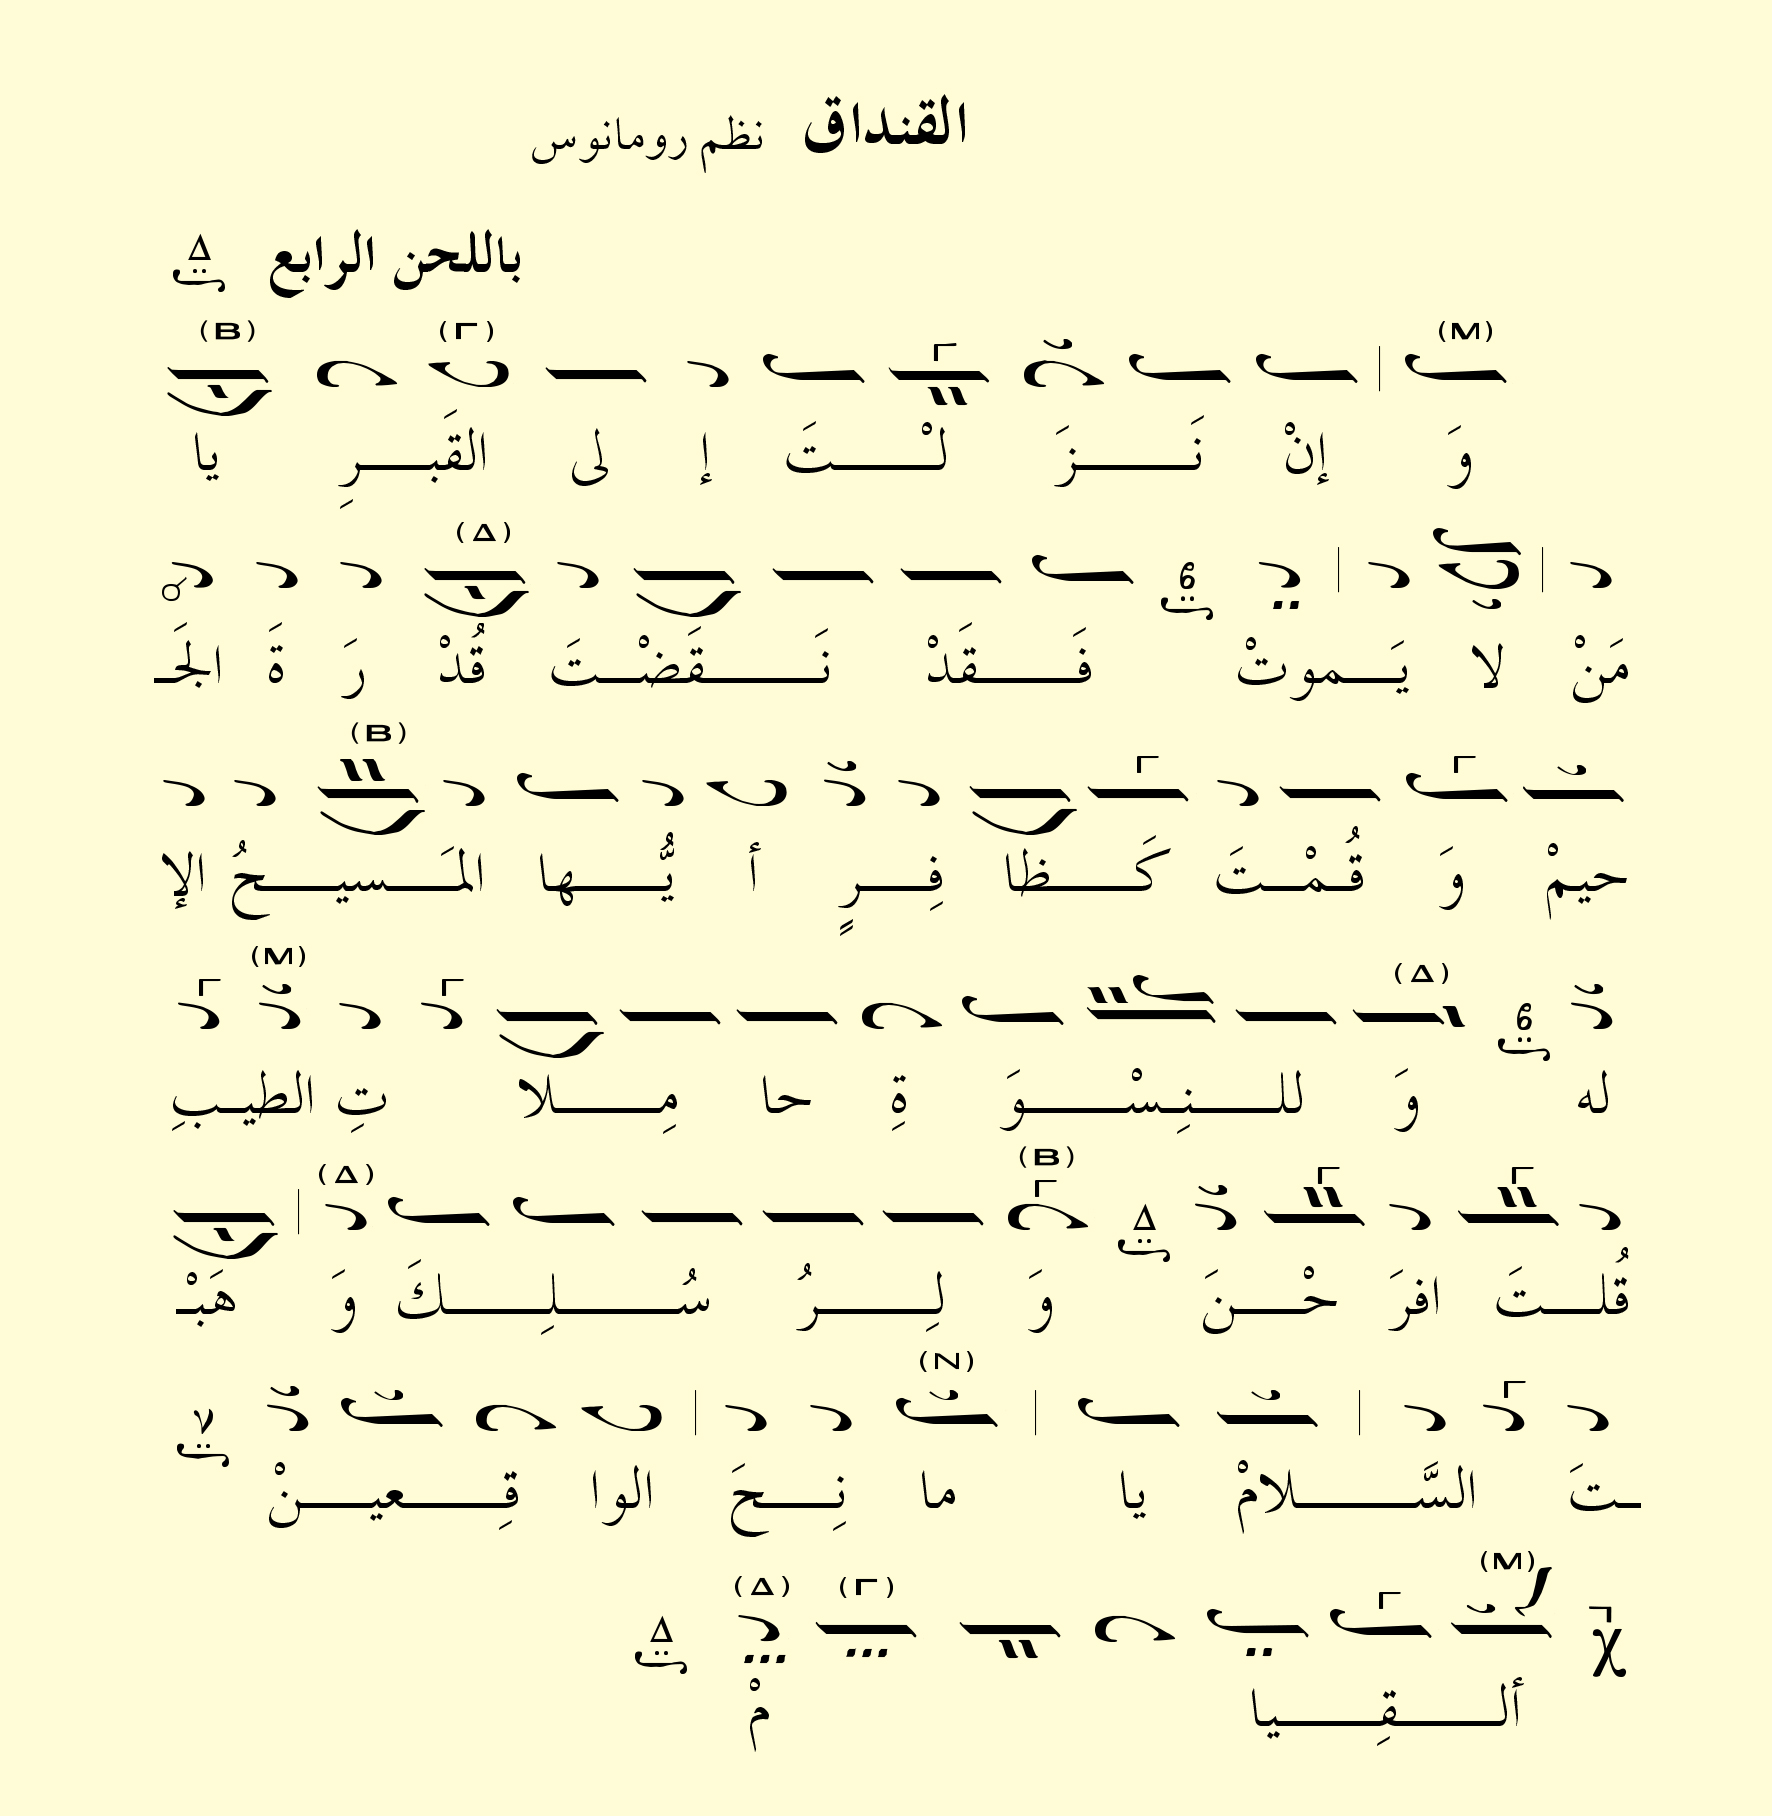 القنداق نظم رومانوس
باللحن الرابع Δ
(M) (Γ) (B)
وَ إنْ نَـــزَ لْـــتَ إ لى القَبـــرِ يا
(Δ)
مَنْ لا يَـــموتْ فَـــقَدْ نَـــقَضْـــتَ قُدْ رَ ةَ الجَـ
(B)
حيمْ وَ قُـمْـتَ كَـــظا فِـــرٍ أ يُّـــها المَـــسيـــحُ الإ
(Δ) (M)
له وَ للـــنِـسْـــوَ ةِ حا مِـــلا تِ الطيـبِ
Δ (B) (Δ)
قُلـــتَ افرَ حْـــنَ وَ لِـــرُ سُـــلِـــكَ وَ هَبْـ
(N) ν
ـتَ السَّـــلامْ يا ما نِـــحَ الوا قِـــعيـــنْ
(M) (Γ) (Δ) Δ
ألـــقِـــيا مْ